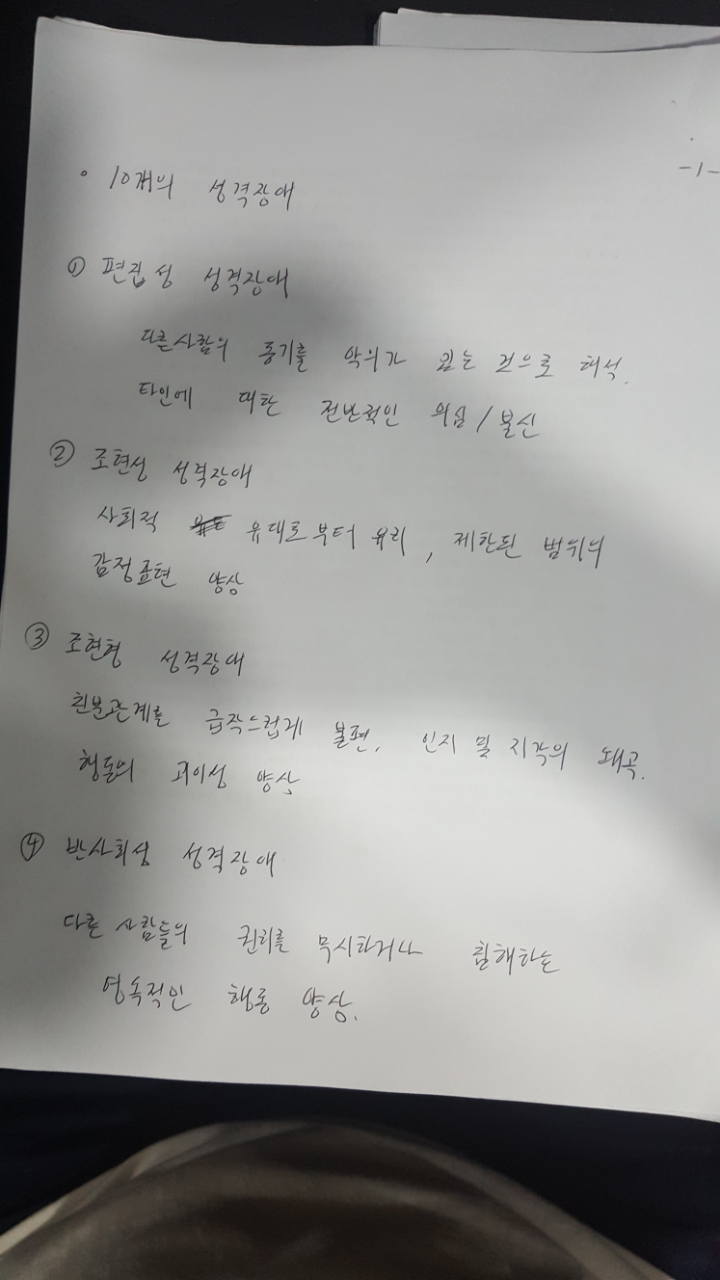 -1-
• 10개의 성격장애
① 편집성 성격장애
다른사람의 동기를 악의가 있는 것으로 해석.
타인에 대한 전반적인 의심 / 불신
② 조현성 성격장애
사회적 유대로부터 유리, 제한된 범위의
감정표현 양상
③ 조현형 성격장애
친분관계를 급작스럽게 불편, 인지 및 지각의 왜곡.
행동의 괴이성 양상
④ 반사회성 성격장애
다른 사람들의 권리를 무시하거나 침해하는
영속적인 행동 양상.